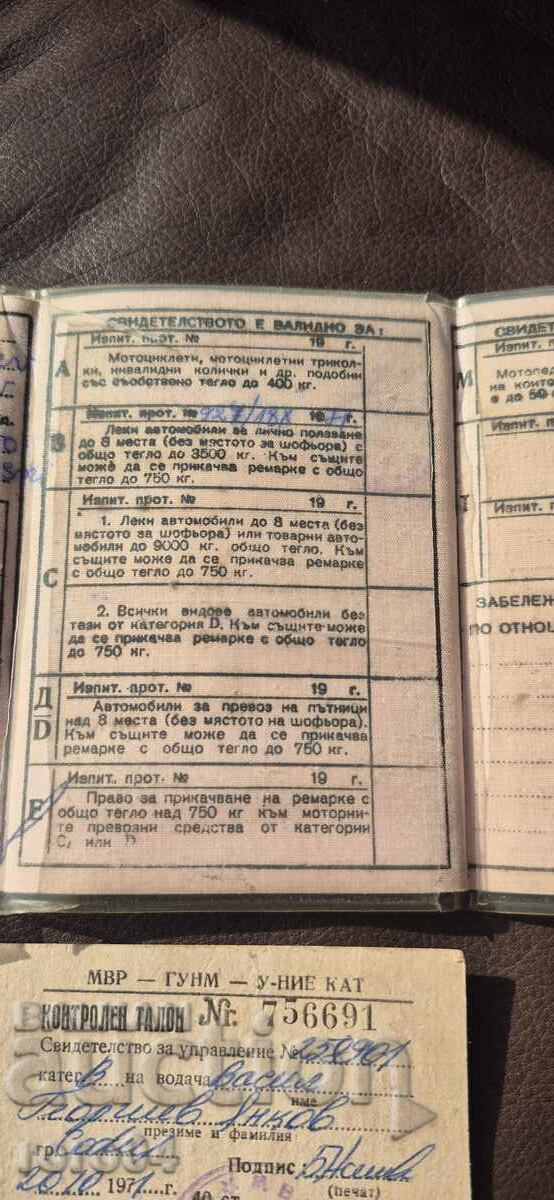 СВИДЕТЕЛСТВОТО Е ВАЛИДНО ЗА:
Изпит. прот. № 19 г.
А
Мотоциклети, мотоциклетни трикол-
ки, инвалидни колички и др. подобни
със съобствено тегло до 400 кг.
Изпит. прот. № 19 г.
В
Леки автомобили за лично ползване
до 8 места (без мястото за шофьора) с
общо тегло до 3500 кг. Към същите
може да се прикачва ремарке с общо
тегло до 750 кг.
Изпит. прот. № 19 г.
С
1. Леки автомобили до 8 места (без
мястото за шофьора) или товарни авто-
мобили до 9000 кг. общо тегло. Към
същите може да се прикачва ремарке
с общо тегло до 750 кг.
2. Всички видове автомобили без
тези от категория D. Към същите може
да се прикачва ремарке с общо тегло
до 750 кг.
Изпит. прот. № 19 г.
Д
D
Автомобили за превоз на пътници
над 8 места (без мястото на шофьора).
Към същите може да се прикачва
ремарке с общо тегло до 750 кг.
Изпит. прот. № 19 г.
Е
Право за прикачване на ремарке с
общо тегло над 750 кг към моторни-
те превозни средства от категории
С, или D
СВИДЕТ
Изпит. п
М
Мотопед
до 50
Изпит.
Изпит.
ЗАБЕЛЕЖ
ПО ОТНОШ
МВР — ГУНМ — У-НИЕ КАТ
КОНТРОЛЕН ТАЛОН Nr. 756691
Свидетелство за управление № 250901
катег В на водача Васил
име
Георгиев Янков
презиме и фамилия
гр. София
Подпис:
20.10 1971 г. (печат)